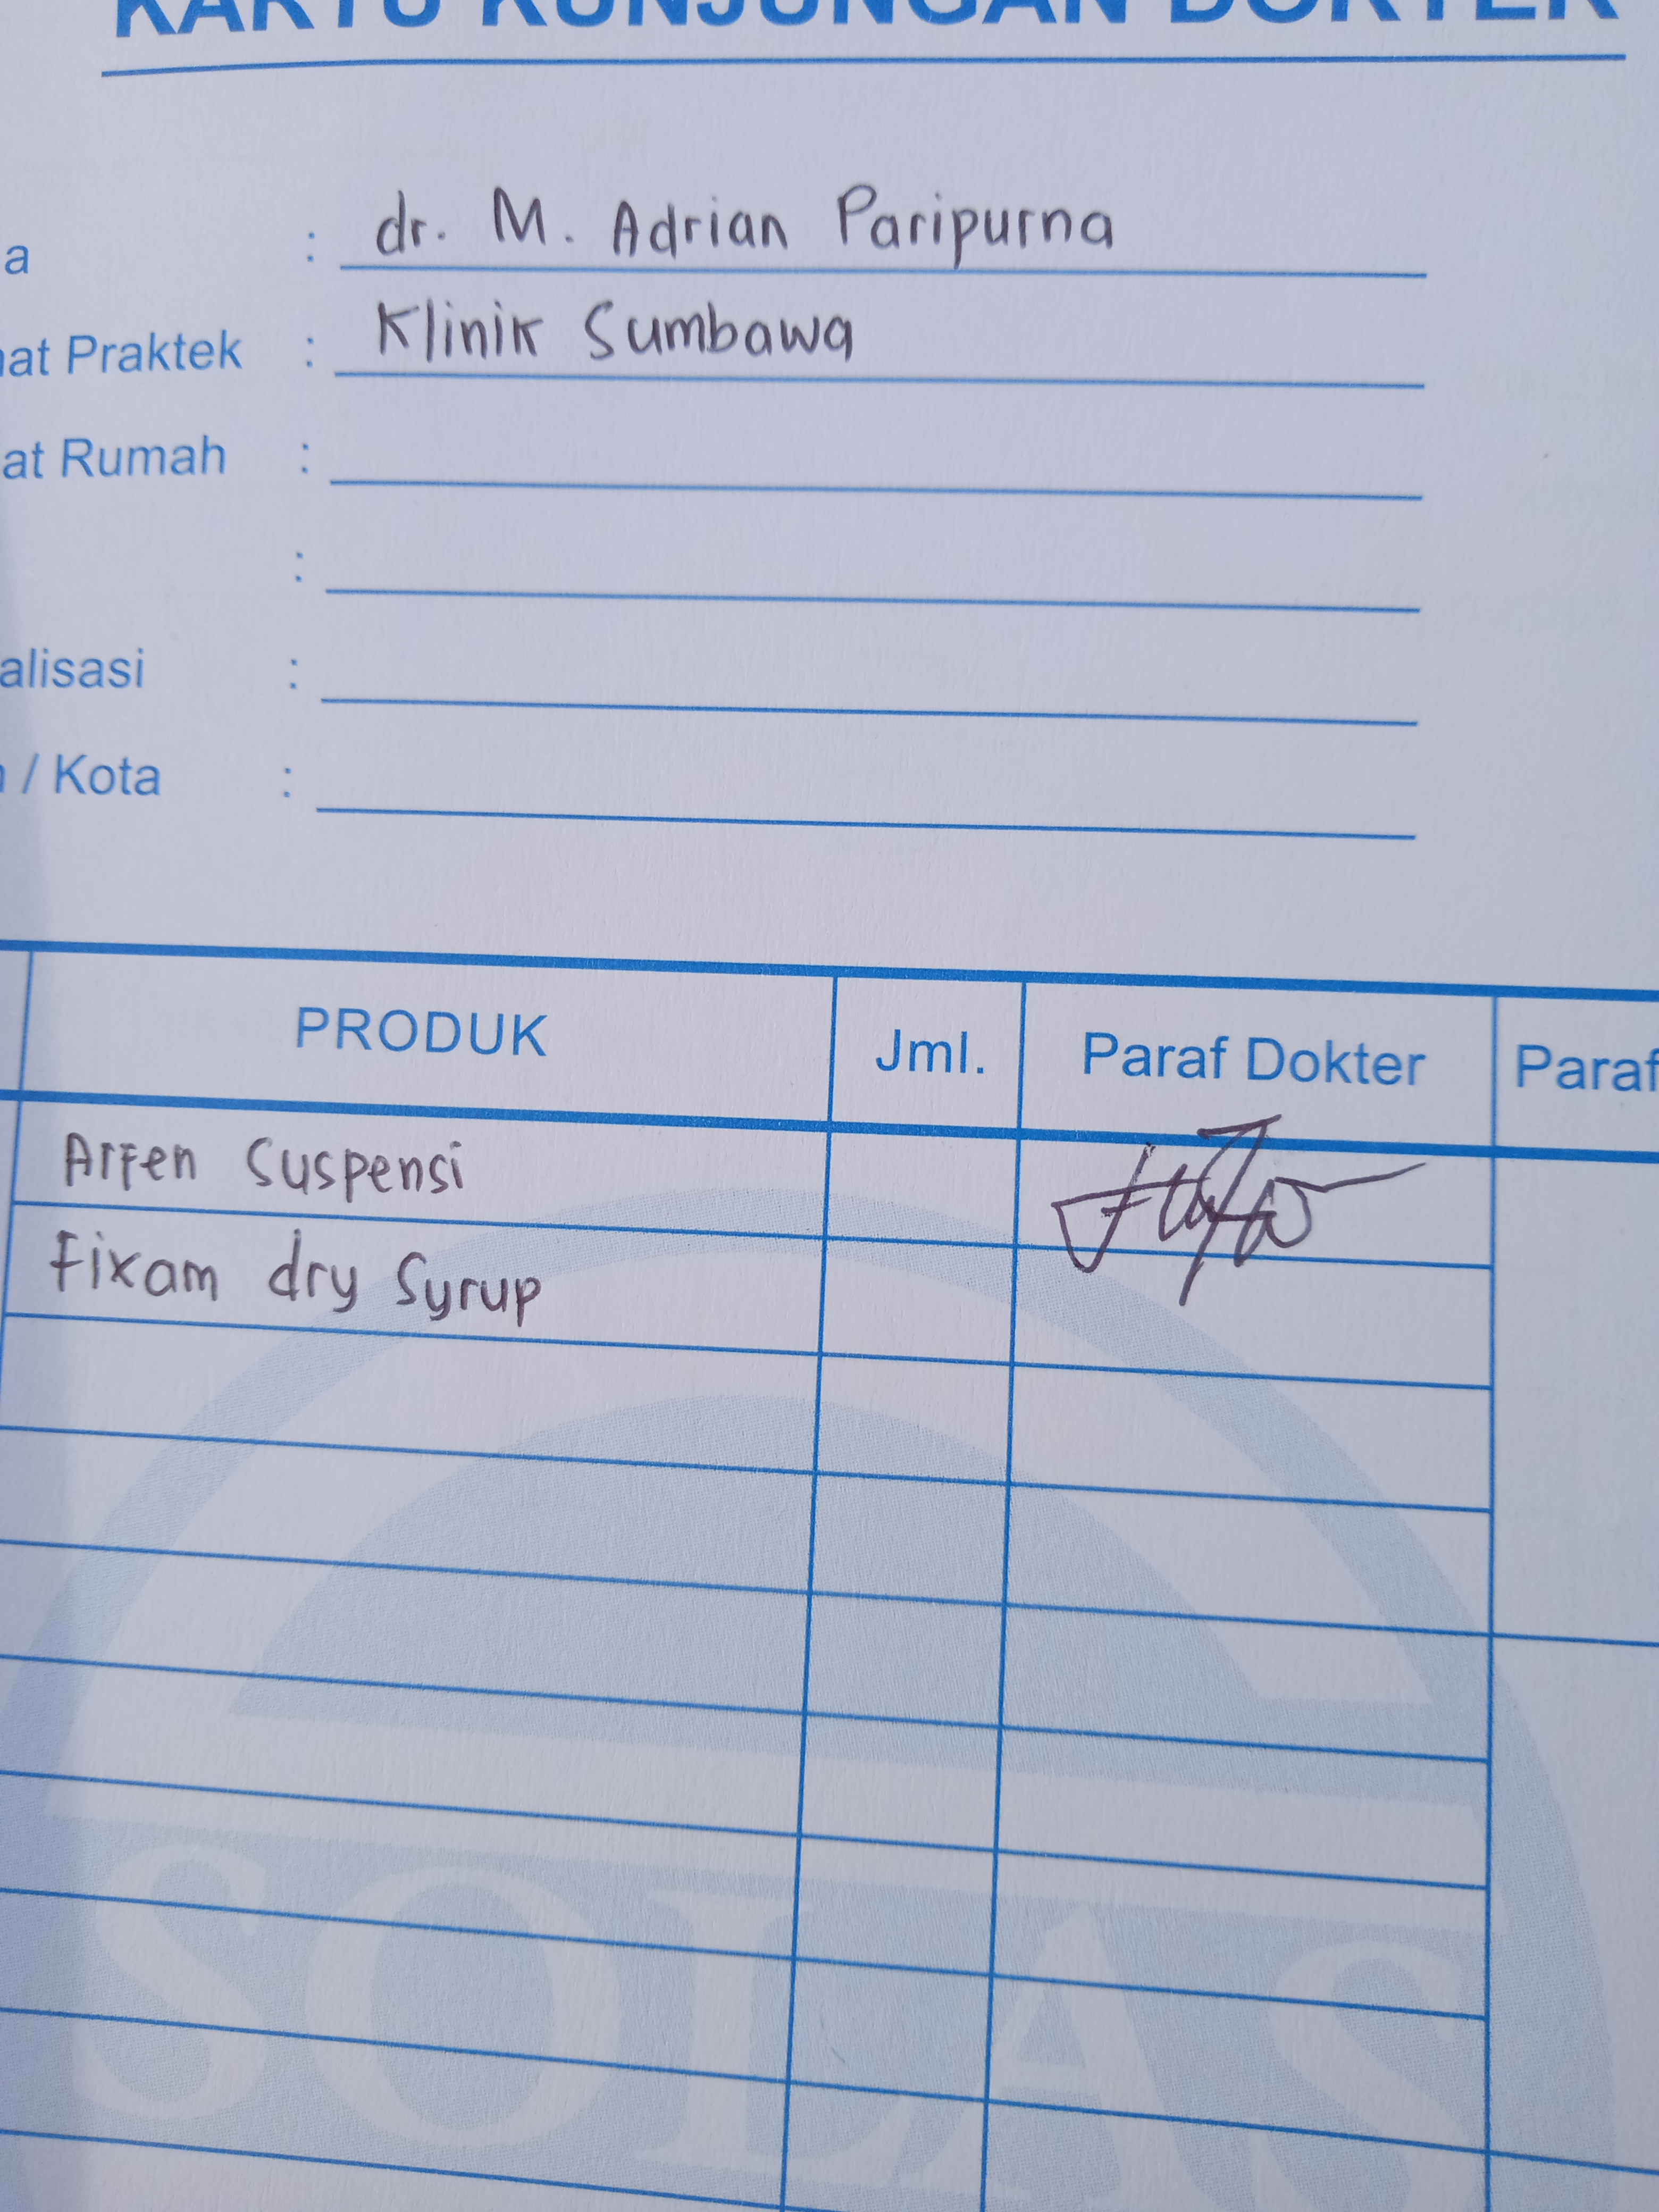 KARTU KUNJUNGAN DOKTER
a : dr. M. Adrian Paripurna
at Praktek : Klinik Sumbawa
at Rumah :
:
alisasi :
/ Kota :
PRODUK Jml. Paraf Dokter Paraf
Arfen Suspensi
Fixam dry Syrup
SOLAS